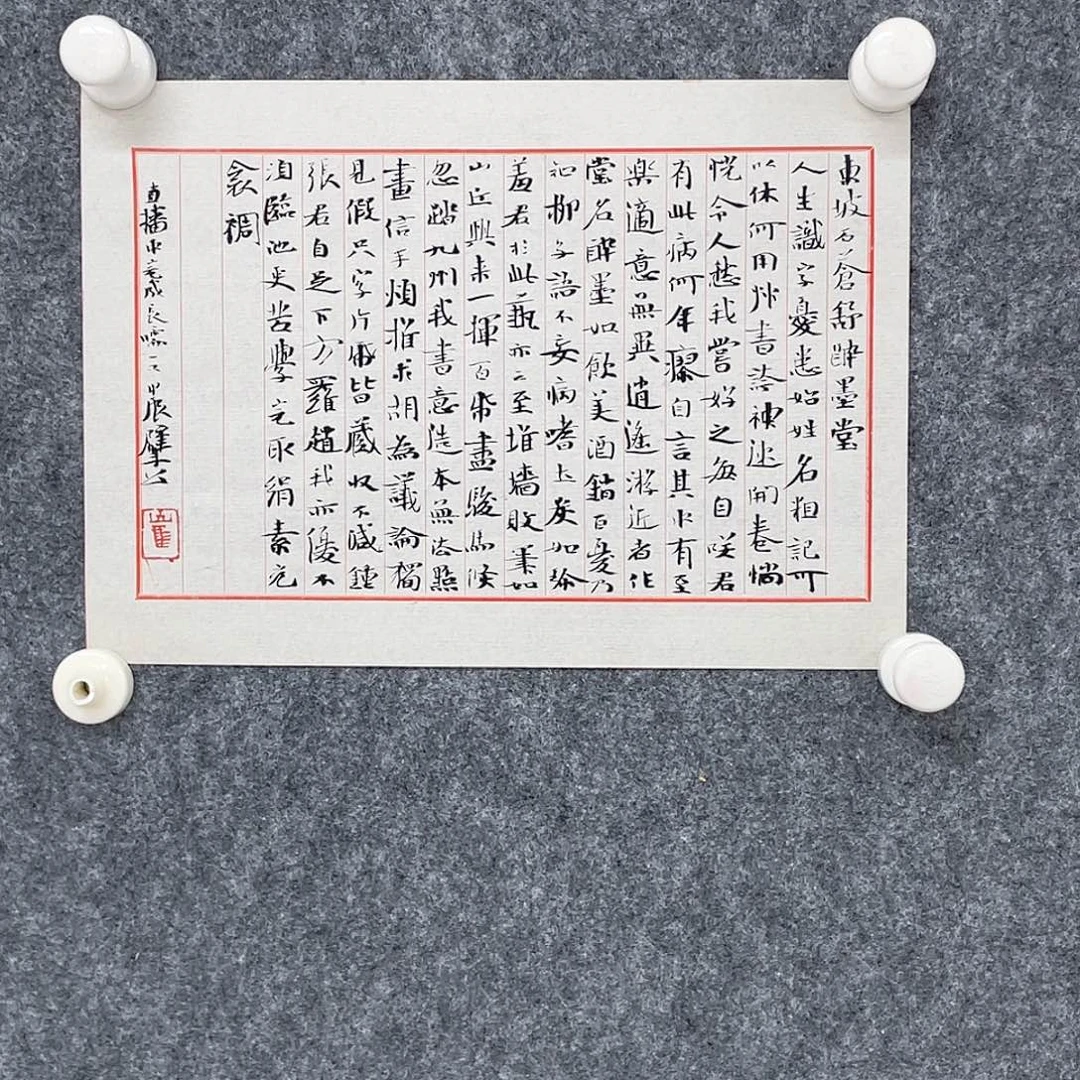 東坡石蒼舒醉墨堂
人生識字憂患始姓名粗記可
以休何用艸書誇神速開卷惝
怳令人愁我嘗好之每自咲君
有此病何年瘳自言其中有至
樂適意無異逍遙游近者作
堂名醉墨如飲美酒銷百憂乃
知柳子語不妄病嗜土炭如珍
羞君於此藝亦云至堆墻敗筆如
山丘興來一揮百帋盡駿馬倏
忽踏九州我書意造本無法點
畫信手煩推求胡為議論獨
見假只字片帋皆藏收不減鍾
張君自足下方羅趙我亦優不
須臨池更苦學完取絹素充
衾裯
直播中完成甲辰